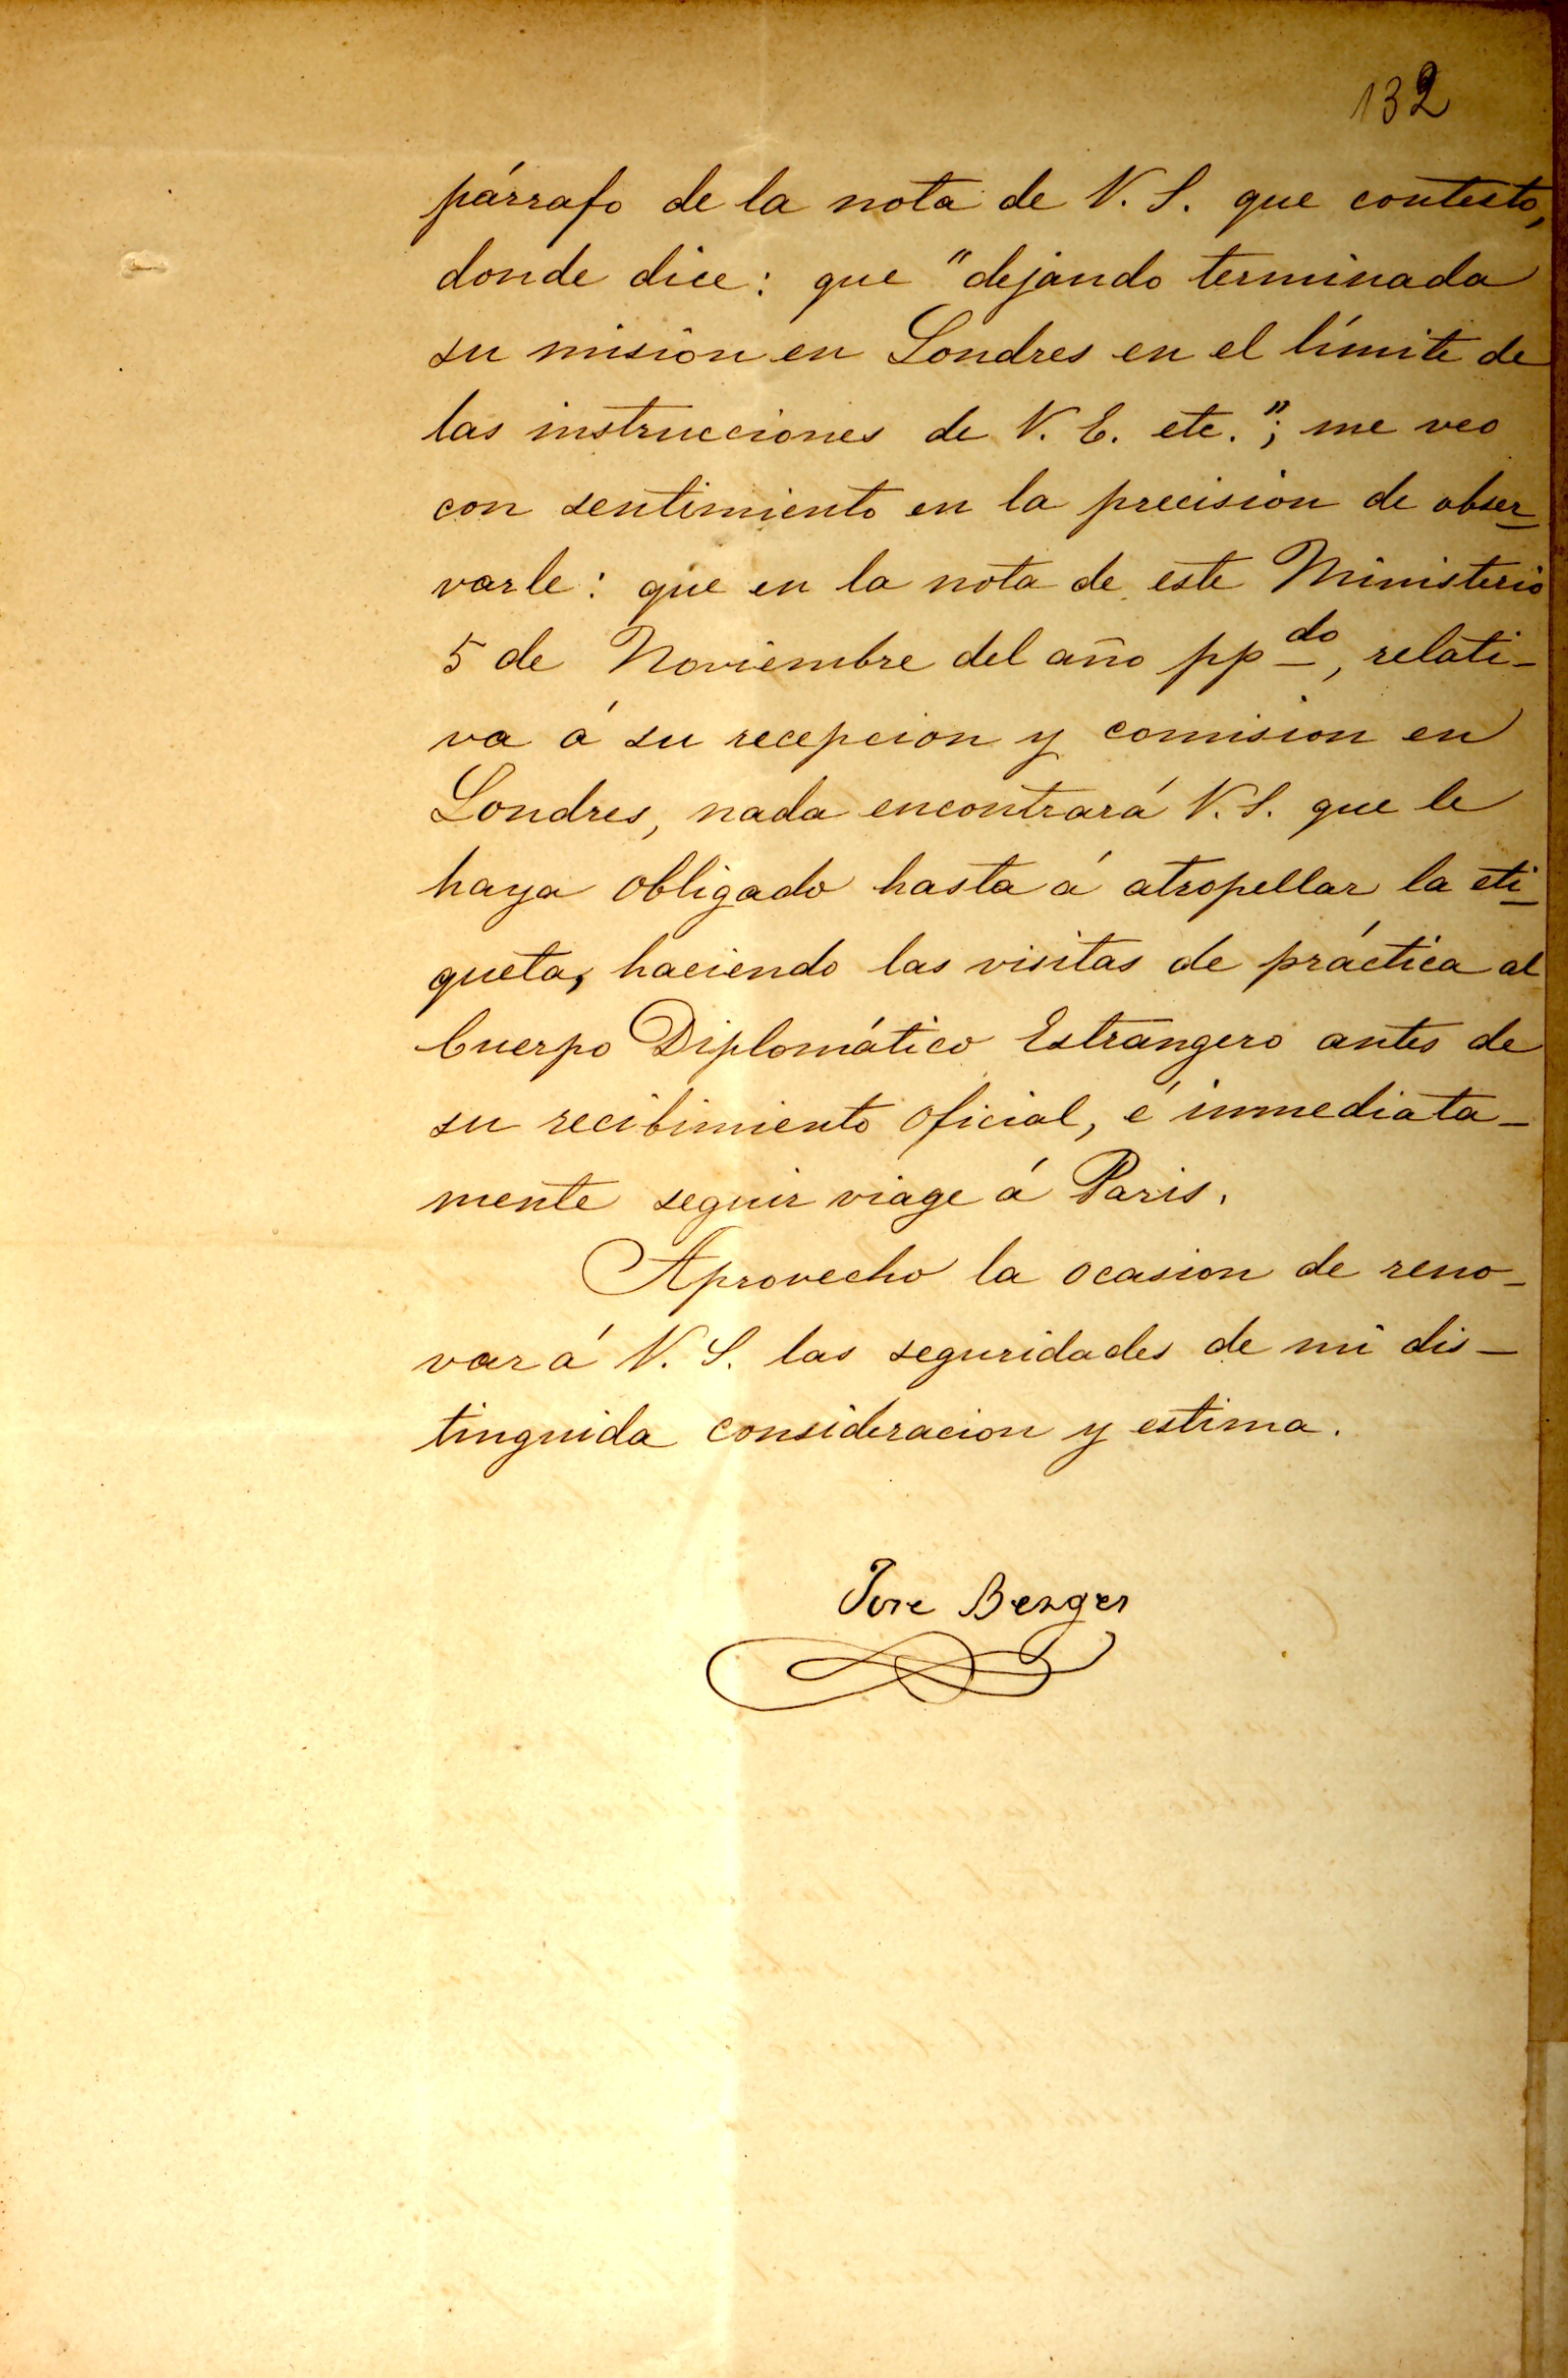 132
párrafo de la nota de V. S. que contesto,
donde dice: que "dejando terminada
su mision en Londres en el límite de
las instrucciones de V. E. etc."; me veo
con sentimiento en la precision de obser-
varle: que en la nota de este Ministerio
5 de Noviembre del año ppdo, relati-
va á su recepcion y comision en
Londres, nada encontrará V. S. que le
haya obligado hasta á atropellar la eti-
queta, haciendo las visitas de práctica al
Cuerpo Diplomático Estrangero antes de
su recibimiento oficial, é inmediata-
mente seguir viage á Paris.
Aprovecho la ocasion de reno-
var á V. S. las seguridades de mi dis-
tinguida consideracion y estima.
Jose Berges